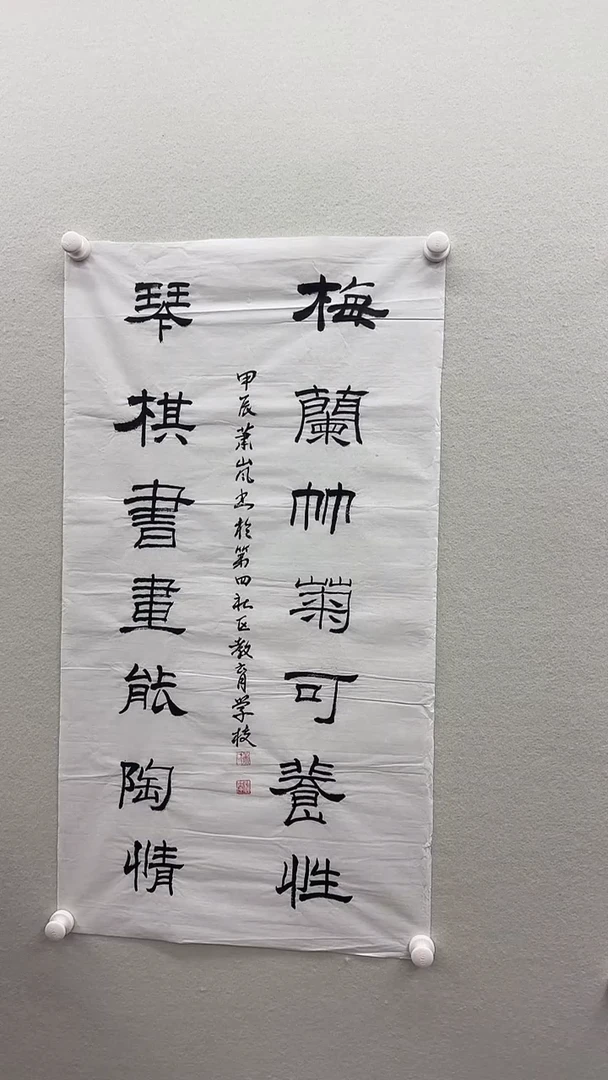 梅蘭竹菊可養性
琴棋書畫能陶情
甲辰萧岚书於第四社区教育学校